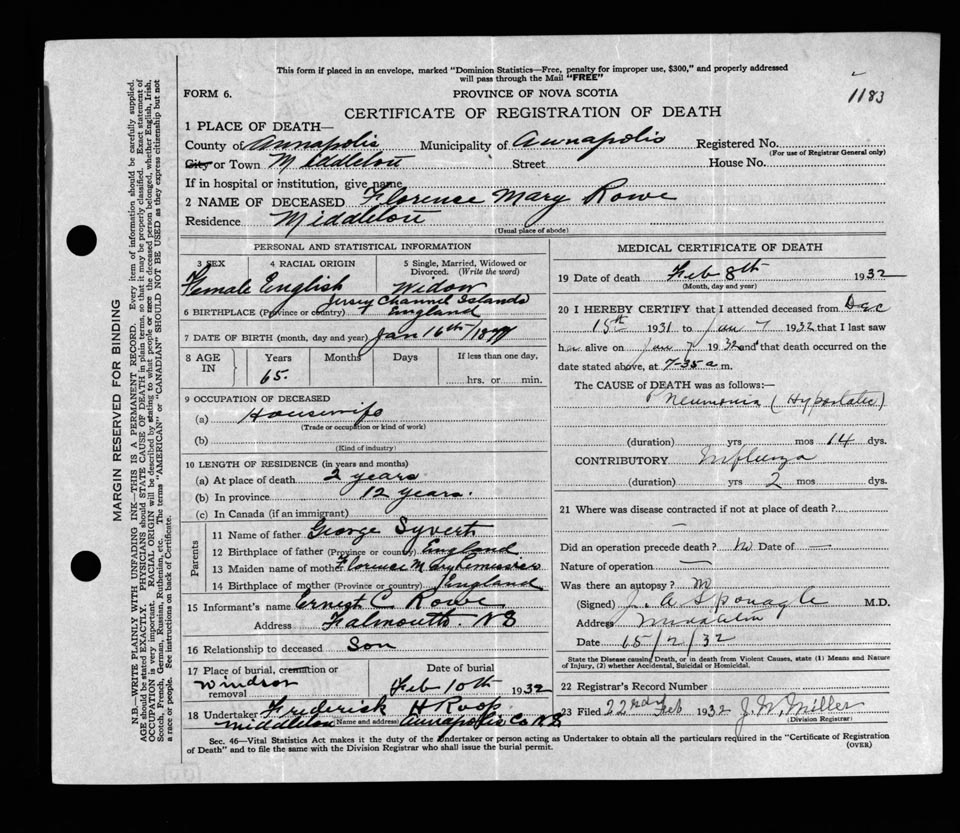 This form if placed in an envelope, marked "Dominion Statistics—Free, penalty for improper use, $300," and properly addressed
will pass through the Mail "FREE"
FORM 6.
PROVINCE OF NOVA SCOTIA
1183
CERTIFICATE OF REGISTRATION OF DEATH
1 PLACE OF DEATH—
County of Annapolis Municipality of Annapolis Registered No.
(For use of Registrar General only)
City or Town Middleton Street House No.
If in hospital or institution, give name
2 NAME OF DECEASED Florence Mary Rowe
Residence Middleton
(Usual place of abode)
PERSONAL AND STATISTICAL INFORMATION
3 SEX 4 RACIAL ORIGIN 5 Single, Married, Widowed or Divorced. (Write the word)
Female English Widow
Jersey Channel Islands
6 BIRTHPLACE (Province or country) England
7 DATE OF BIRTH (month, day and year) Jan 16th
8 AGE IN Years Months Days If less than one day,
65. hrs. or min.
9 OCCUPATION OF DECEASED
(a) Housewife
(Trade or occupation or kind of work)
(b)
(Kind of industry)
10 LENGTH OF RESIDENCE (in years and months)
(a) At place of death 2 years
(b) In province 12 years.
(c) In Canada (if an immigrant)
Parents
11 Name of father George Syvert
12 Birthplace of father (Province or country) England
13 Maiden name of mother Florence Mary
14 Birthplace of mother (Province or country) England
15 Informant's name Ernest C. Rowe
Address Falmouth. NS
16 Relationship to deceased Son
17 Place of burial, cremation or removal Date of burial
Windsor Feb 10th 1932
18 Undertaker Frederick H Roop
Middleton Name and address Annapolis Co NS
MEDICAL CERTIFICATE OF DEATH
19 Date of death Feb 8th 1932
(Month, day and year)
20 I HEREBY CERTIFY that I attended deceased from Dec
15th 1931 to Jan 7 1932 that I last saw
her alive on Jan 7 1932 and that death occurred on
date stated above, at 7-35 a m.
The CAUSE of DEATH was as follows:—
Pneumonia (Hypostatic)
(duration) yrs mos 14 dys.
CONTRIBUTORY Influenza
(duration) yrs 2 mos dys.
21 Where was disease contracted if not at place of death?
—
Did an operation precede death? no Date of —
Nature of operation —
Was there an autopsy? no
(Signed) J. A. Sponagle M.D.
Address Middleton
Date 15/2/32
State the Disease causing Death, or in death from Violent Causes, state (1) Means and Nature
of Injury, (2) whether Accidental, Suicidal or Homicidal.
22 Registrar's Record Number
23 Filed 22nd Feb 1932 J. W. Miller
(Division Registrar)
Sec. 46—Vital Statistics Act makes it the duty of the Undertaker or person acting as Undertaker to obtain all the particulars required in the "Certificate of Registration
of Death" and to file the same with the Division Registrar who shall issue the burial permit.
(OVER)
MARGIN RESERVED FOR BINDING
N.B.—WRITE PLAINLY WITH UNFADING INK—THIS IS A PERMANENT RECORD. Every item of information should be carefully supplied.
AGE should be stated EXACTLY. PHYSICIANS should STATE CAUSE OF DEATH in plain terms, so that it may be properly classified. Exact statement of
OCCUPATION is very important. RACIAL ORIGIN will be described by stating to what people or race the deceased person belonged, whether English, Irish,
Scotch, French, German, Russian, Ruthenian, etc. The terms "AMERICAN" or "CANADIAN" SHOULD NOT BE USED as they express citizenship but not
a race or people. See instructions on back of Certificate.